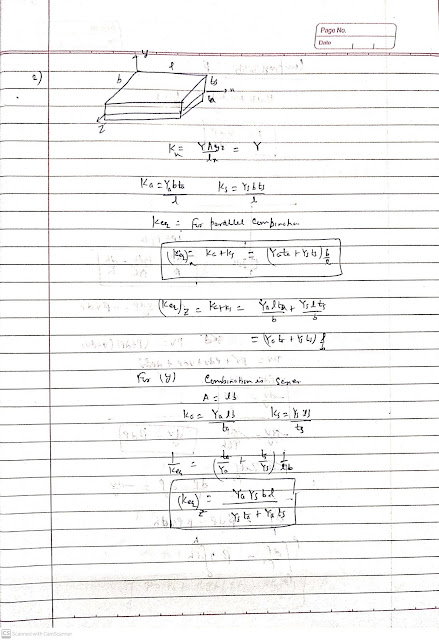 Page No.
Date
c)
y
b l ts
ta x
z
Kx = Y Ayz / lx = Y
Ka = Ya b ts / l Ks = Ys b ts / l
Keq = For parallel Combination
(Keq)x = Ka + Ks = (Yata + Ysts) b/l
(Keq)z = Ka + Ks = Ya l ta / b + Ys l ts / b
= (Ya ta + Ys ts) l/b
For (y) Combination is Series
A = lb
Ka = Ya l b / ta Ks = Ys l b / ts
1/Keq = (ta/Ya + ts/Ys) 1/lb
(Keq)z = Ya Ys b l / Ys ta + Ya ts
CS Scanned with CamScanner